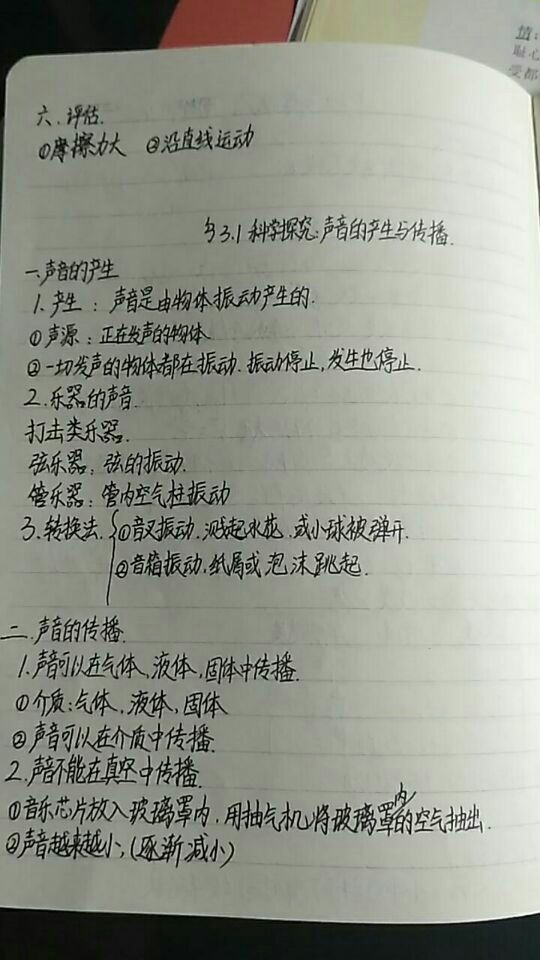 值:
耻心
受都
六.评估.
①摩擦力大 ②沿直线运动
§3.1 科学探究:声音的产生与传播.
一.声音的产生
1.产生:声音是由物体振动产生的.
①声源:正在发声的物体
②一切发声的物体都在振动.振动停止,发生也停止.
2.乐器的声音.
打击类乐器.
弦乐器:弦的振动.
管乐器:管内空气柱振动
3.转换法.{①音叉振动.溅起水花.或小球被弹开.
②音箱振动.纸屑或泡沫跳起.
二.声音的传播.
1.声音可以在气体、液体,固体中传播.
①介质:气体,液体,固体
②声音可以在介质中传播.
2.声音不能在真空中传播.
①音乐芯片放入玻璃罩内,用抽气机将玻璃罩内的空气抽出.
②声音越来越小,(逐渐减小)